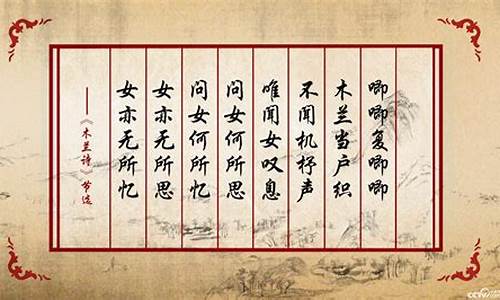 唧唧复唧唧
木兰当户织
不闻机杼声
唯闻女叹息
问女何所思
问女何所忆
女亦无所思
女亦无所忆
——《木兰诗》节选
CCTV